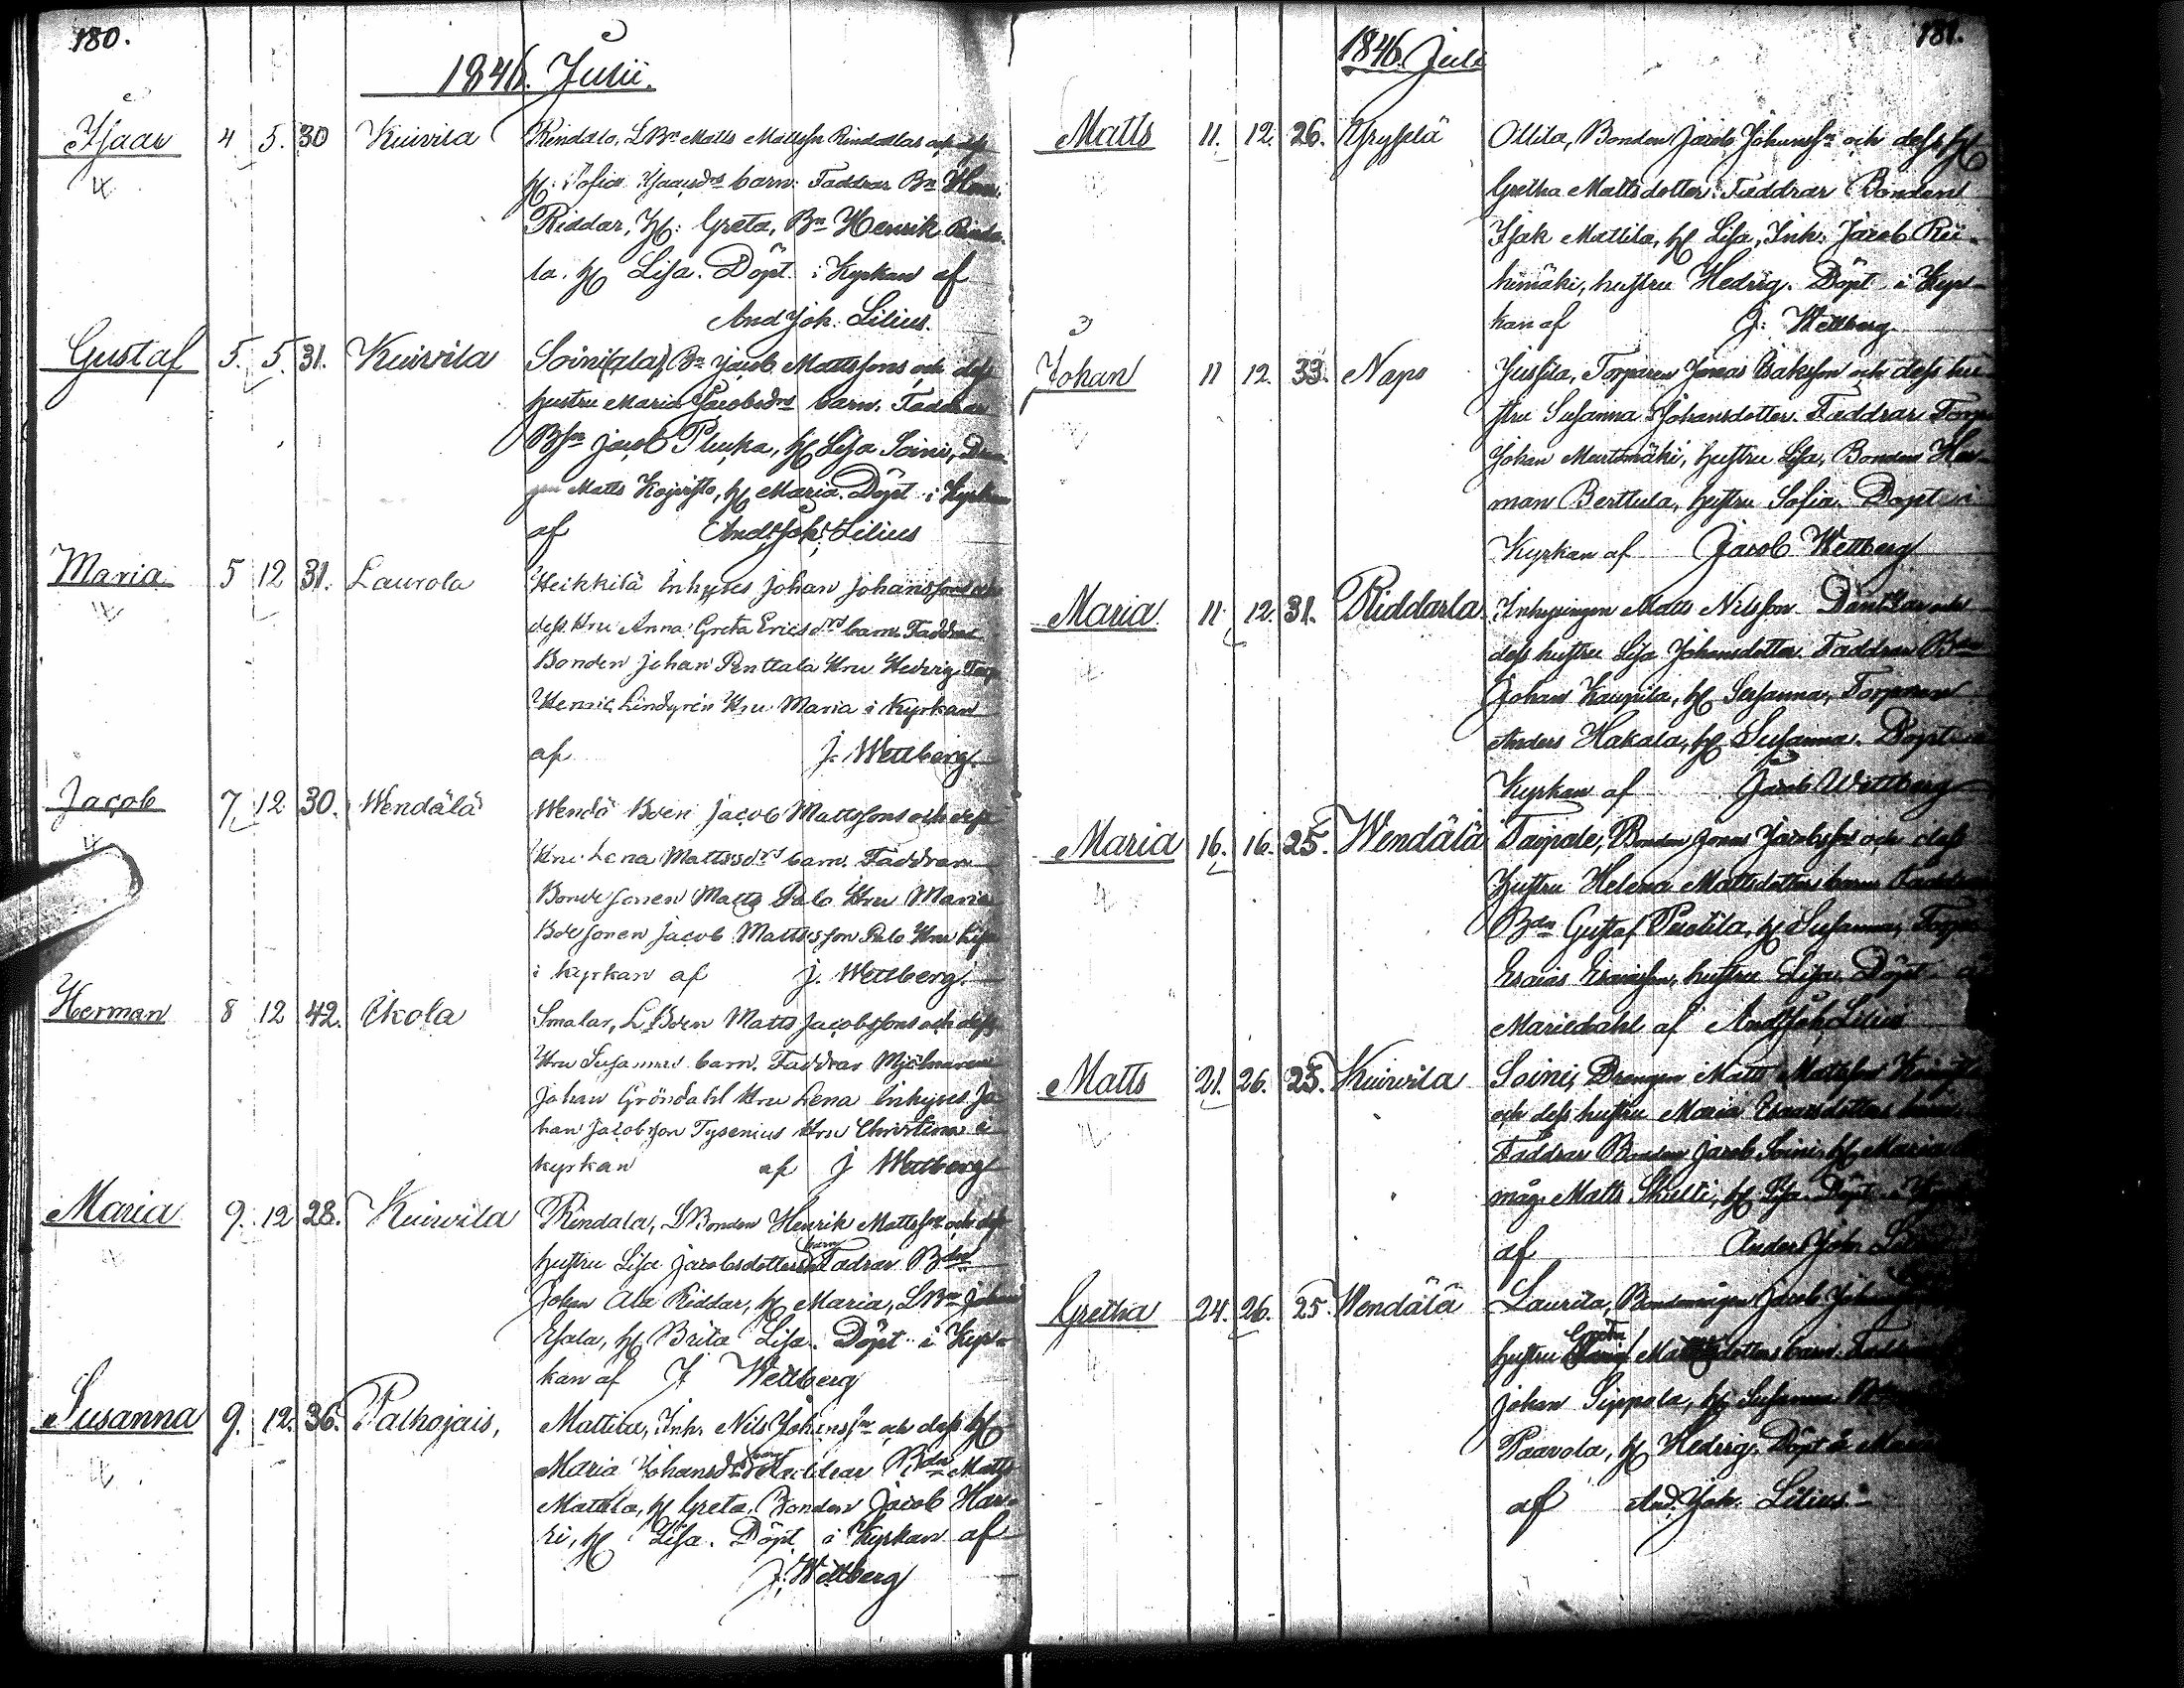 180.
1846. Julii.
Isaac 4 5. 30 Kuivila Rindala, LBn Matts Mattsson Rindalas och dess
H: Sofia Isaacsdrs barn. Faddrar Bn
Riddar, H: Greta, Bn Henrik Rinda-
la. H Lisa. Döpt i Kyrkan af
And Joh: Lilius.
Gustaf 5. 5. 31. Kuivila Soini (ala) Bn Jacob Mattssons och dess
hustru Maria Jacobsdrs barn. Faddrar
Bsn Jacob, H Lisa Soini, Drän-
gen Matts Koivisto, H Maria. Döpt i Kyrkan
af And: Joh: Lilius
Maria 5 12 31. Laurola Heikkilä Inhyses Johan Johanssons och
dess Hru Anna Greta Ericsdrs barn Faddrar
Bonden Johan Penttala Hru Hedvig Torp
Henric Lindgren Hru Maria i Kyrkan
af J. Wettberg.
Jacob 7 12 30. Wendälä Wendä Bden Jacob Mattssons och dess
Hru Lena Mattsdrs barn. Faddrar
Bondesonen Matts Palo Hru Maria
Bdesonen Jacob Mattsson Palo Hru Lisa
i kyrkan af J. Wettberg.
Herman 8 12 42. Ekola Smalar, LBden Matts Jacobssons och dess
Hru Susannas barn. Faddrar Mjölnaren
Johan Gröndahl Hru Lena Inhyses Jo
han Jacobsson Tysenius Hru Christina i
kyrkan af J Wettberg
Maria 9. 12 28. Kuivila Rindala, LBonden Henrik Mattssn och dess
hustru Lisa Jacobsdotters barn Fadrar Bdn
Johan Ala Riddar, H Maria, LBn Johan
Esala, H Brita Lisa. Döpt i Kyr-
kan af J Wettberg
Susanna 9. 12. 36. Palhojais, Mattila, Inh. Nils Johanssn och dess H
Maria Johansd. barn Faddrar Bdn Matts
Mattila, H Greta, Bonden Jacob Har-
ri, H Lisa. Döpt i Kyrkan af
J. Wettberg
181.
1846. Juli
Matts 11. 12. 26. Ollila, Bonden Jacob Johanssn och dess H
Gretha Mattsdotter. Faddrar Bonden
Isak Mattila, H Lisa, Inh: Jacob Rii-
himäki, hustru Hedvig. Döpt i Kyr-
kan af J: Wettberg
Johan 11 12. 33. Napo Jussila, Torparen Jonas Isaksson och dess hu-
stru Susanna Johansdotter. Faddrar Torp
Johan Martomäki, hustru Lisa, Bonden Her-
man Berttula, hustru Sofia. Döpt i
Kyrkan af Jacob Wettberg
Maria 11 12. 31. Riddarla Inhysingen Matts Nilsson Danskar och
dess hustru Lisa Johansdotter. Faddrar Bdn
Johan Kaupila, H Susanna, Torparen
Anders Hakala, H Susanna. Döpt i
Kyrkan af Jacob Wettberg
Maria 16. 16. 25. Wendälä Taipale, Bonden Jonas Jacobsson och dess
hustru Helena Mattsdotters barn Faddrar
Bdn Gustaf, H Susanna, Torp
Esaias Esaiasson, hustru Lisa. Döpt å
Mariedahl af And Joh, Lilius
Matts 21. 26. 25. Kuivila Soini, Drengen Matts Mattsson
och dess hustru Maria Esaiasdotters barn
Faddrar Bonden Jacob Soini, H Maria
måg Matts Skutti, H Lisa. Döpt i
af Anders Joh
Gretha 24. 26. 25 Wendälä Laurila, Bondemågen Jacob
hustru Greta Mattsdotters barn.
Johan Sippola, H Susanna
Paavola, H Hedvig. Döpt å
af And. Joh. Lilius